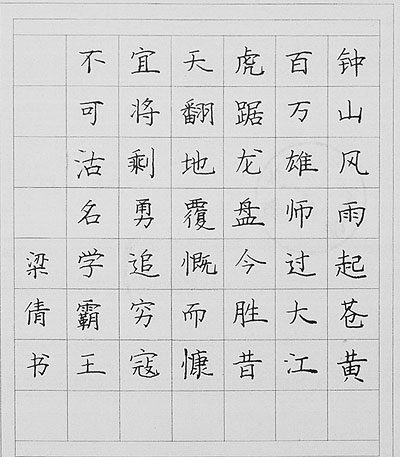 钟山风雨起苍黄
百万雄师过大江
虎踞龙盘今胜昔
天翻地覆慨而慷
宜将剩勇追穷寇
不可沽名学霸王
梁倩书